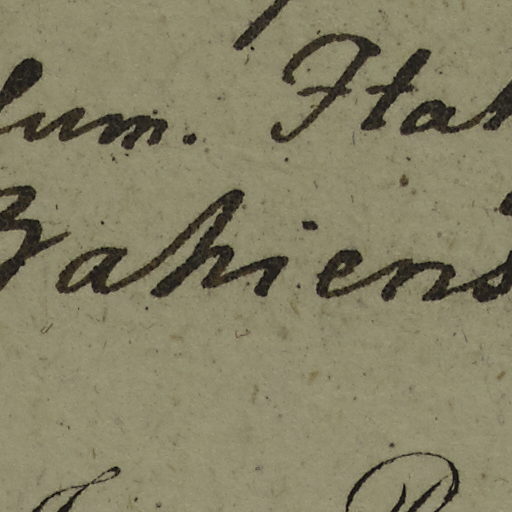 lum. Itah
Bahiens